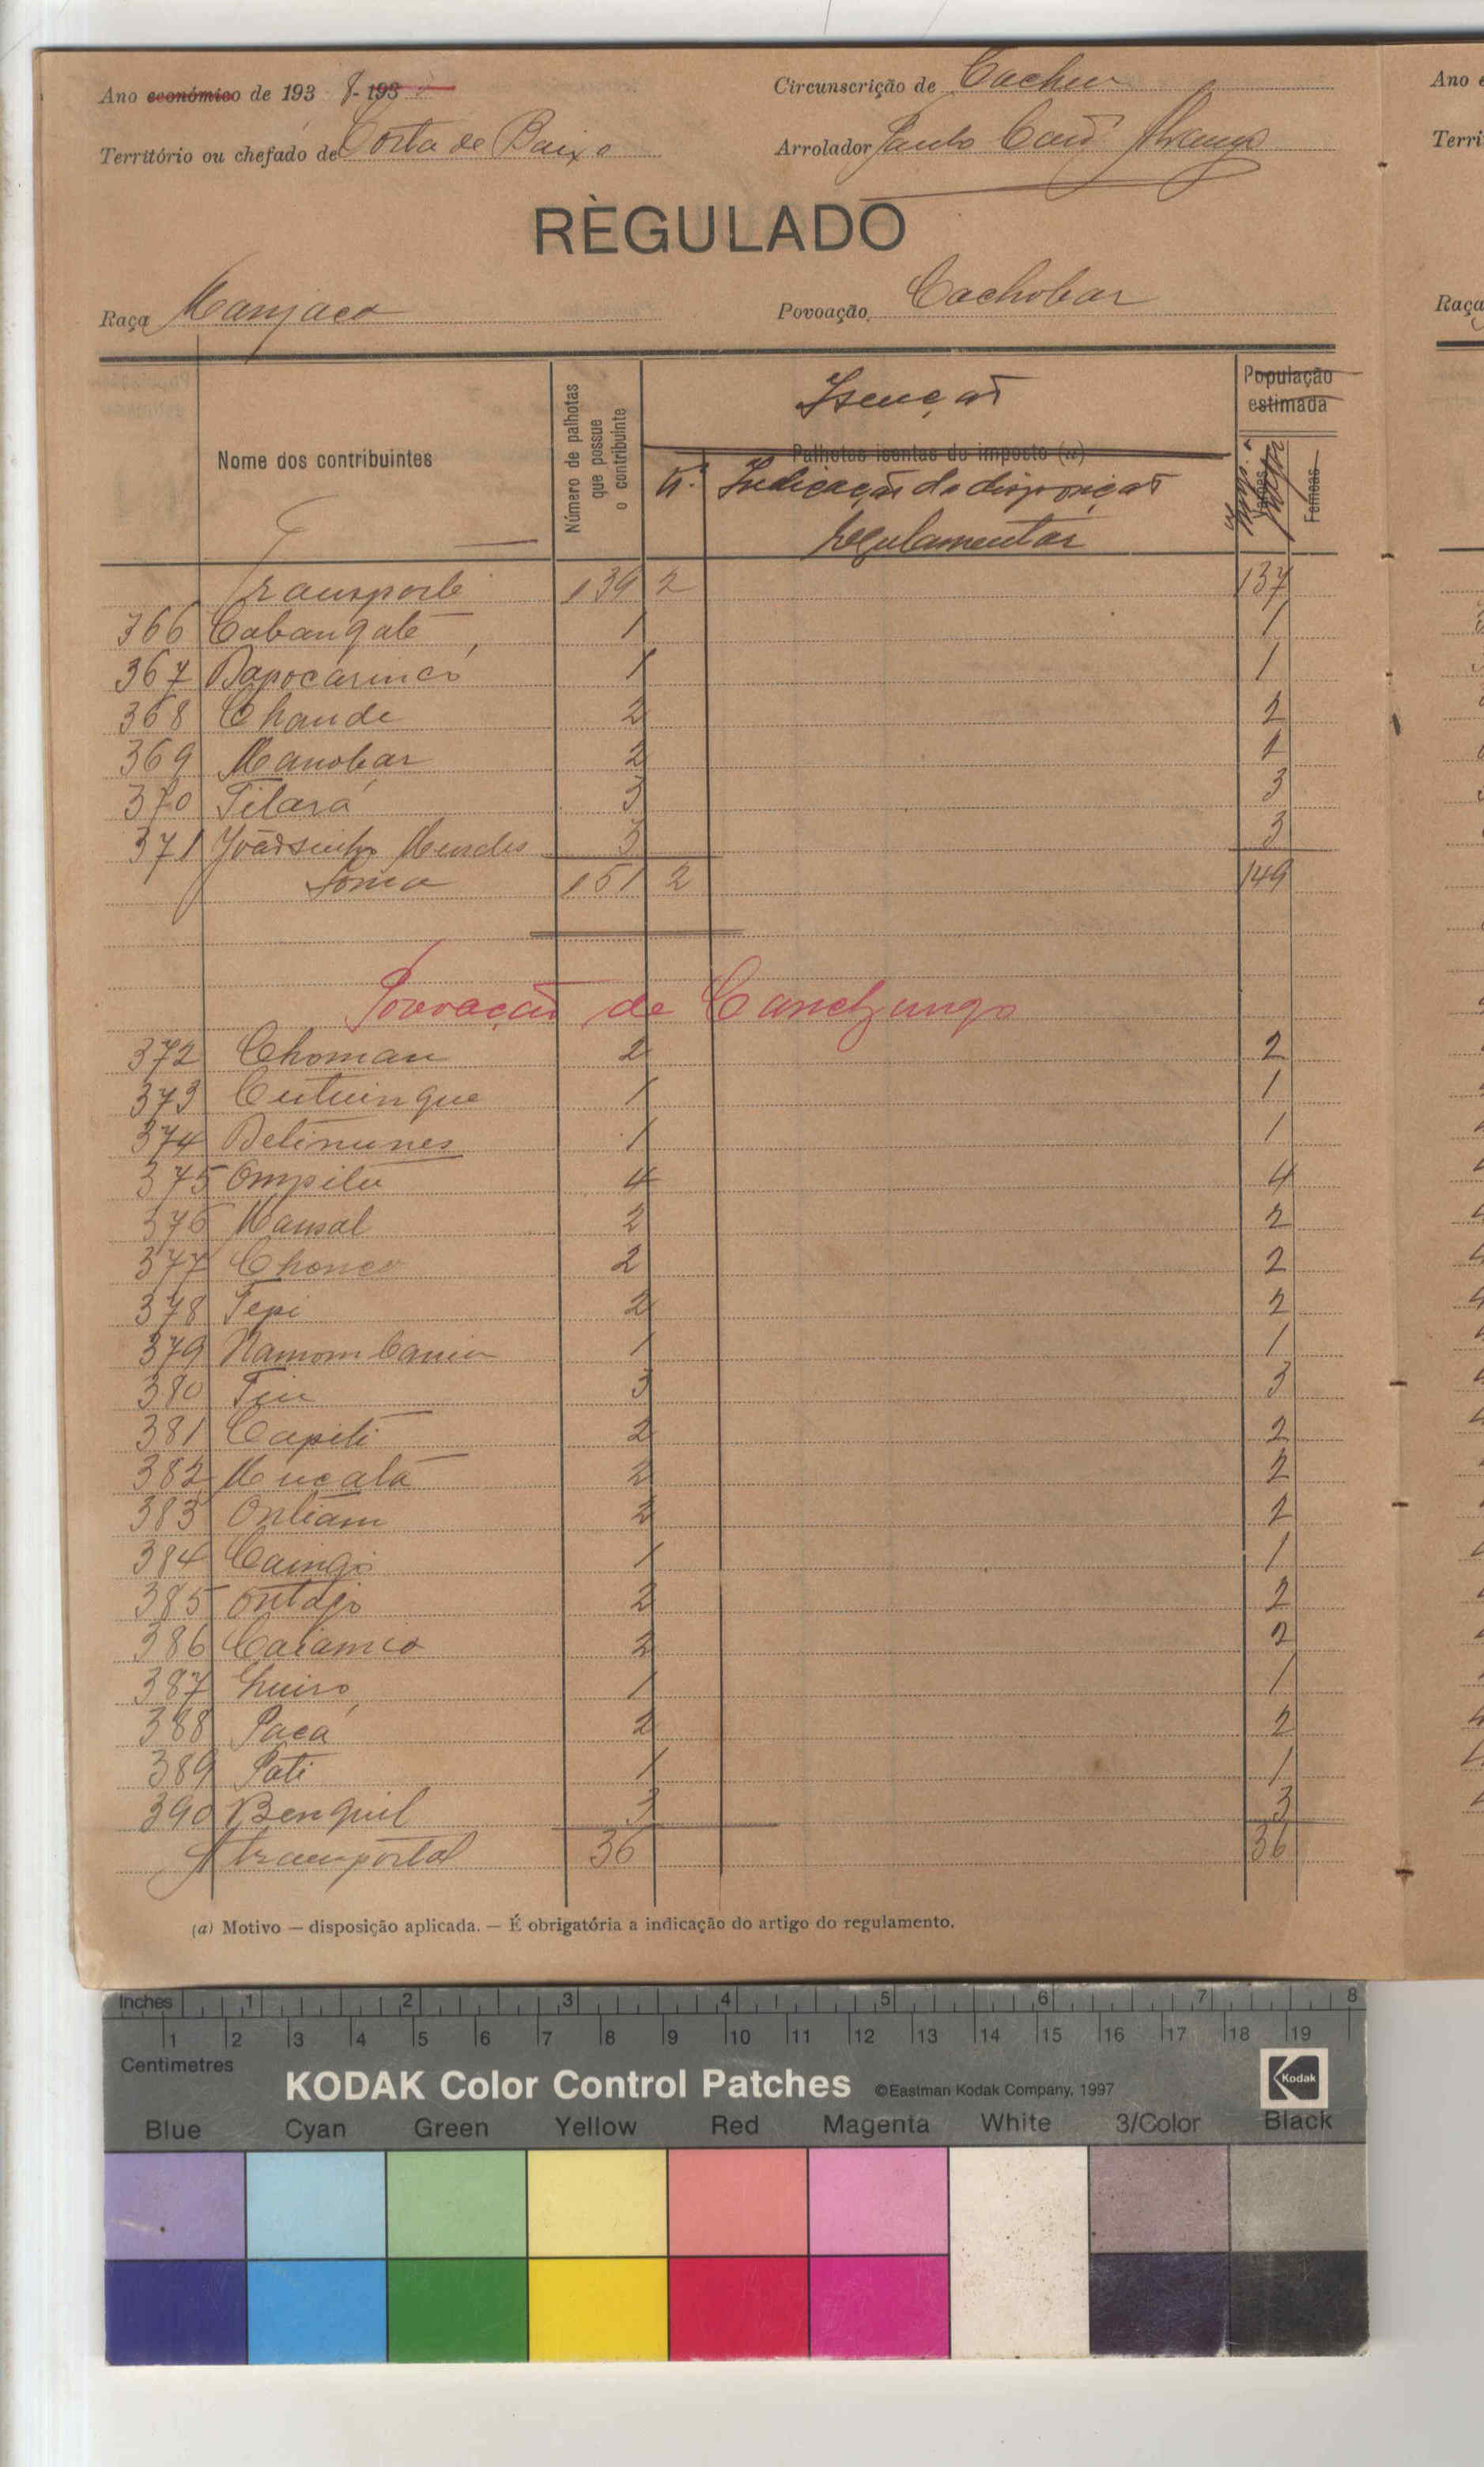 Ano económico de 193 8-193
Circunscrição de Cacheu
Território ou chefado de Costa de Baixo
Arrolador Paulo
RÈGULADO
Raça Manjaco
Povoação Cachobar
Nome dos contribuintes
Número de palhotas que possue o contribuinte
Isenção
Palhotas isentas do imposto (a)
N.º Indicação da disposição regulamentar
População estimada
Femeas
Transporte 139 2 137
366 Cabangate 1 1
367 Bapocarincó 1 1
368 Chande 2 2
369 Manobar 2 2
370 Tilará 3 3
371 Joãosinho Mendes 3 3
Soma 151 2 149
Povoação de Canchungo
372 Choman 2 2
373 Cutuinque 1 1
374 Betinunes 1 1
375 Ompilu 4 4
376 Mansal 2 2
377 Chonco 2 2
378 Tepi 2 2
379 Namom Caniu 1 1
380 3 3
381 Capiti 2 2
382 Mucatá 2 2
383 Ontiam 2 2
384 Caingó 1 1
385 Ontajo 2 2
386 Caiamco 2 2
387 1 1
388 Pacá 2 2
389 Pati 1 1
390 Benquil 3 3
A transportal 36 36
(a) Motivo — disposição aplicada. — É obrigatória a indicação do artigo do regulamento.
Ano
Terri
Raça
Inches 1 2 3 4 5 6 7 8
1 2 3 4 5 6 7 8 9 10 11 12 13 14 15 16 17 18 19
Centimetres
KODAK Color Control Patches ©Eastman Kodak Company, 1997 Kodak
Blue Cyan Green Yellow Red Magenta White 3/Color Black